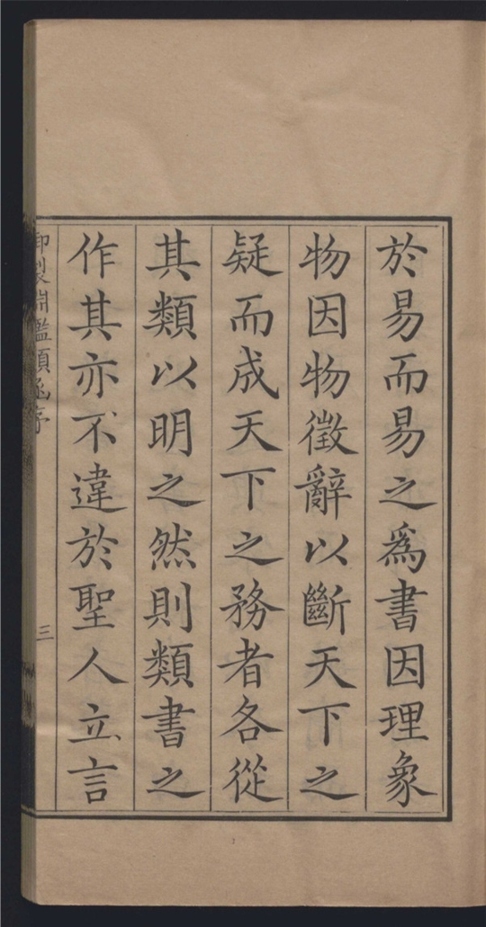 於易而易之爲書因理象
物因物徵辭以斷天下之
疑而成天下之務者各從
其類以明之然則類書之
作其亦不違於聖人立言
御製淵鑑類函序
三